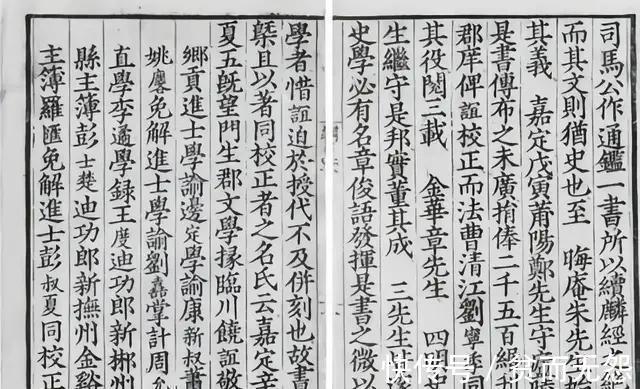 司馬公作通鑑一書所以續麟經
而其文則猶史也至 晦庵朱先
其義 嘉定戊寅莆陽鄭先生守
是書傳布之未廣捐俸二千五百
郡庠俾誼校正而法曹清江劉寧
其役閱三載 金華章先生 四
生繼守是邦實董其成 三先生
史學必有名章俊語發揮是書之微以
學者惜誼迫於授代不及併刻也故書
槩且以著同校正者之名氏云嘉定辛
夏五旣望門生郡文學掾臨川饒誼敬
鄉貢進士學諭邊定學諭康新叔蕭
姚麐免解進士學諭劉嘉掌計周
直學李遹學録王度迪功郎新郴州
縣主簿彭士楚迪功郎新撫州金谿
主簿羅匯免解進士彭叔夏同校正
快传号 / 贫而无怨